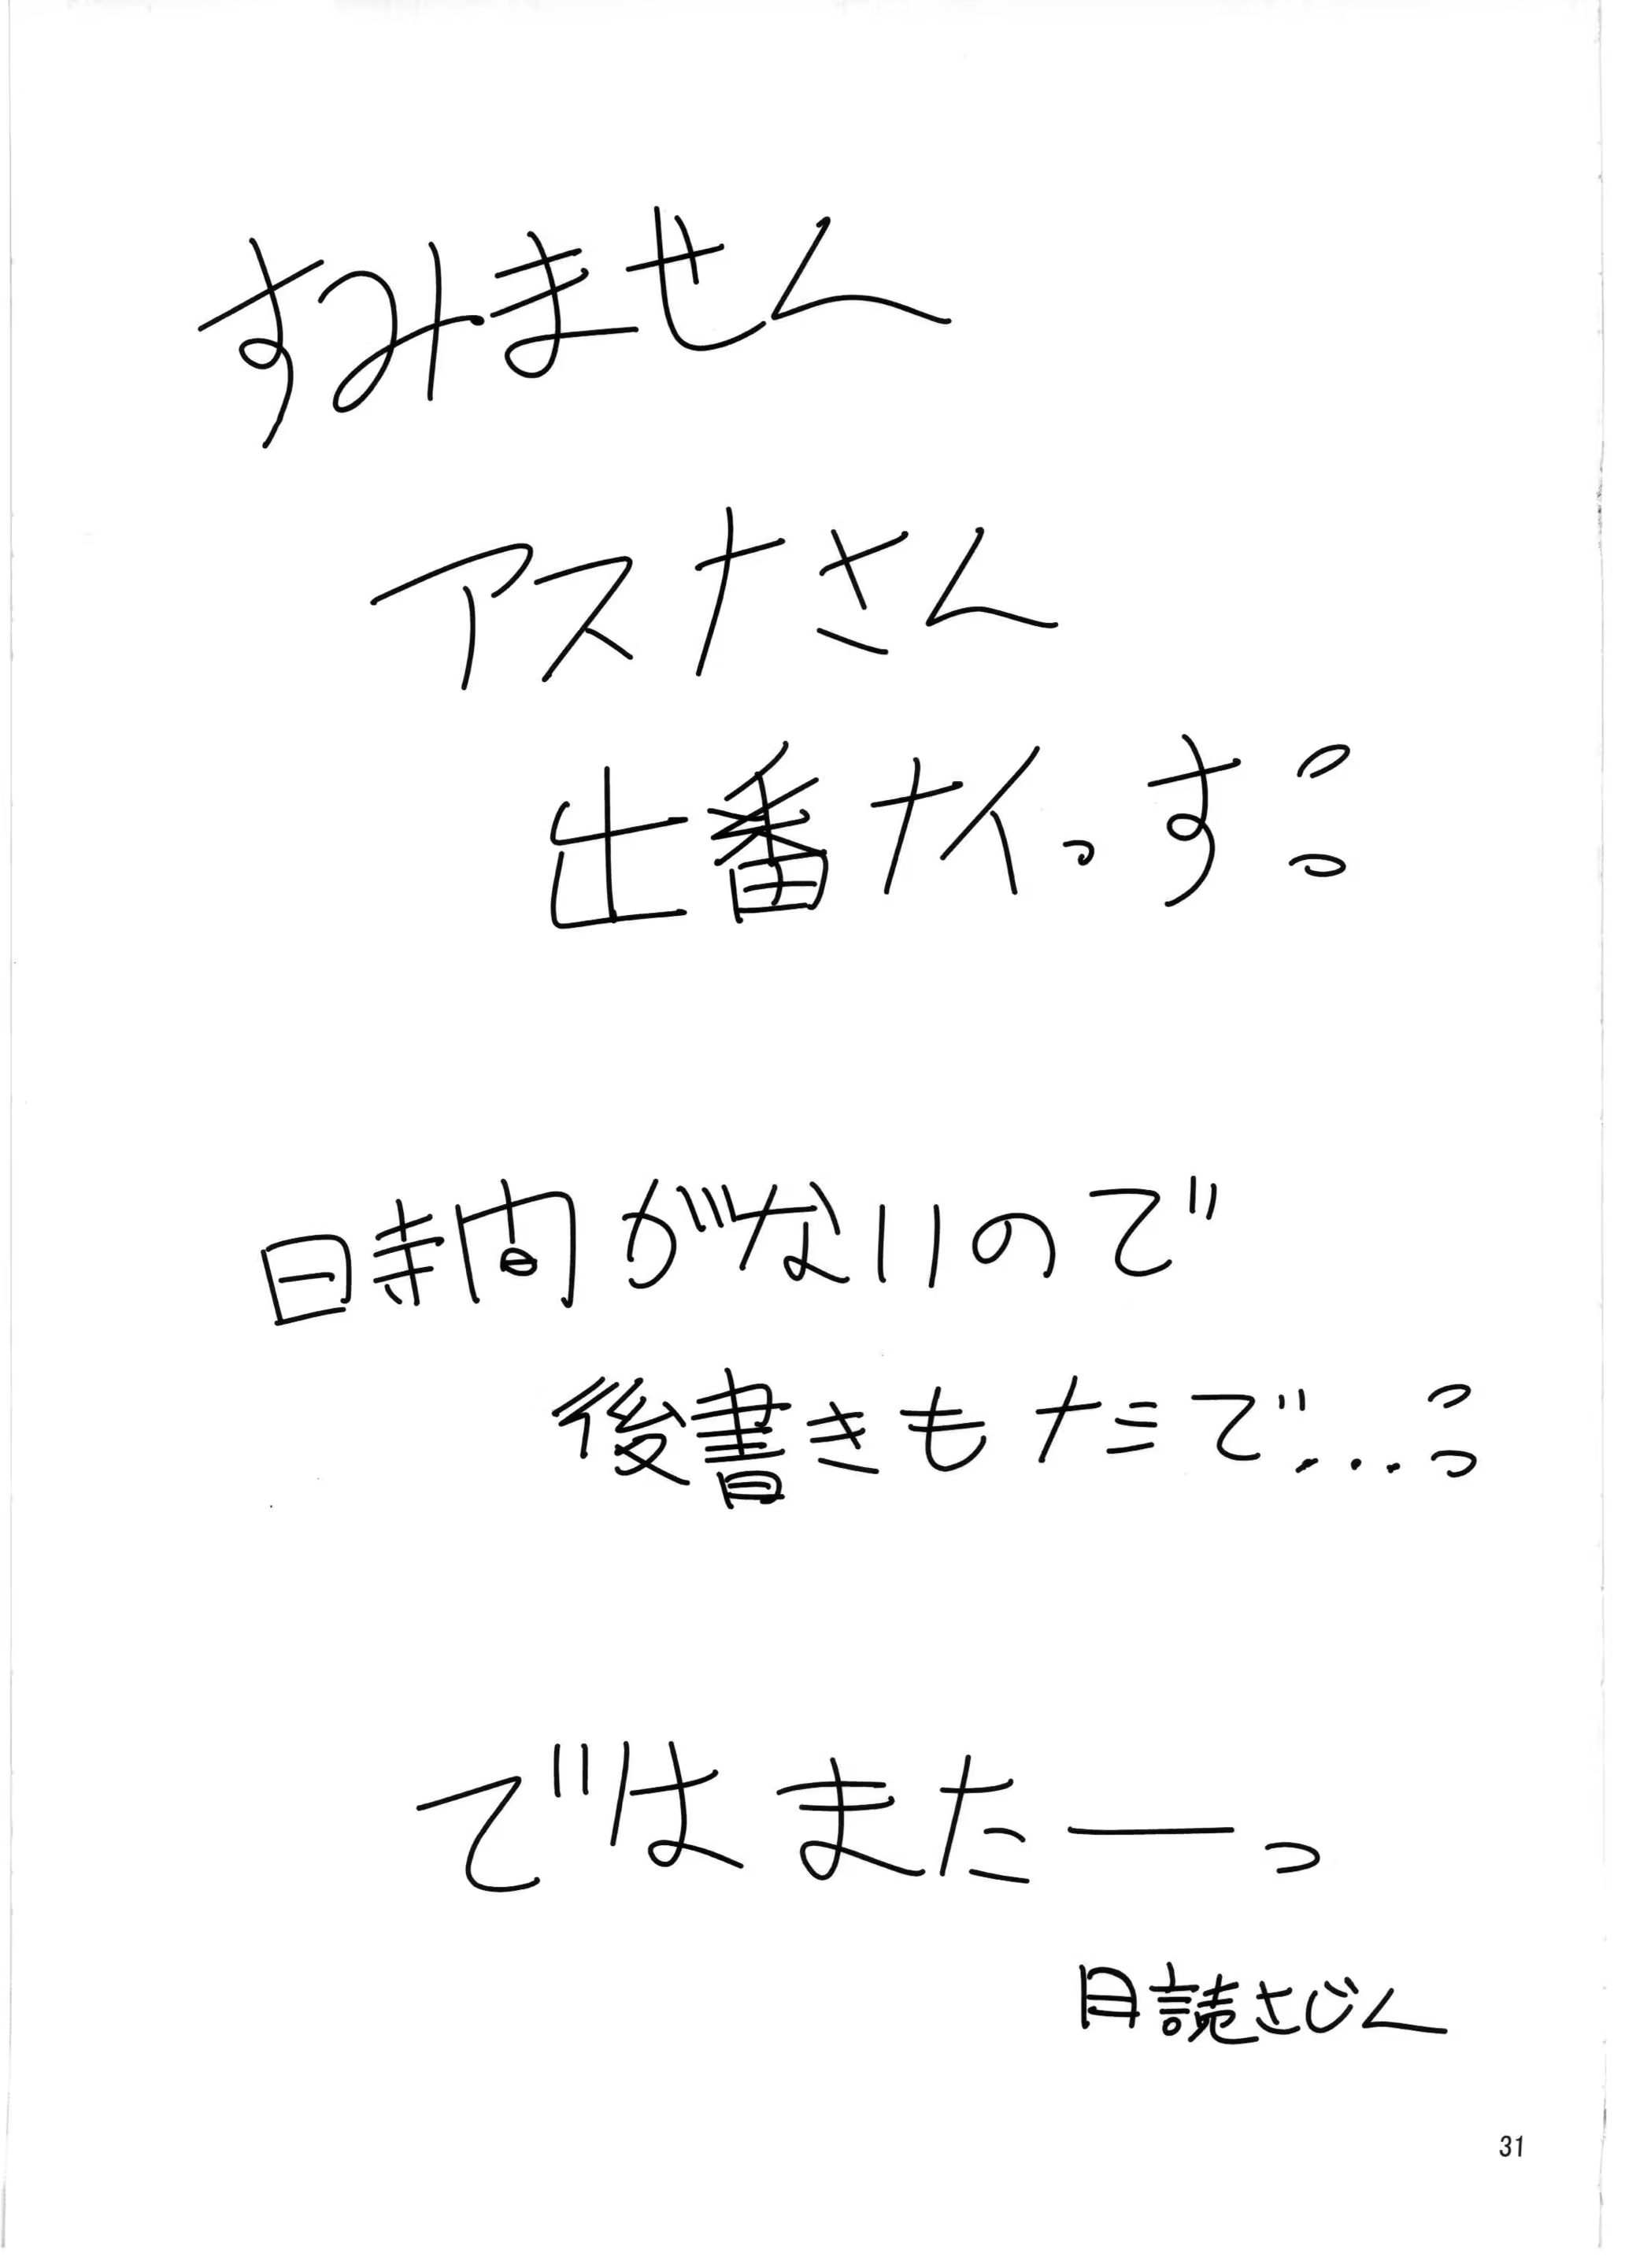 すみません
アスナさん
出番ナイっすっっ
時間がないので
後書きもナミで…っっ
ではまたーっ
月読さじん
31